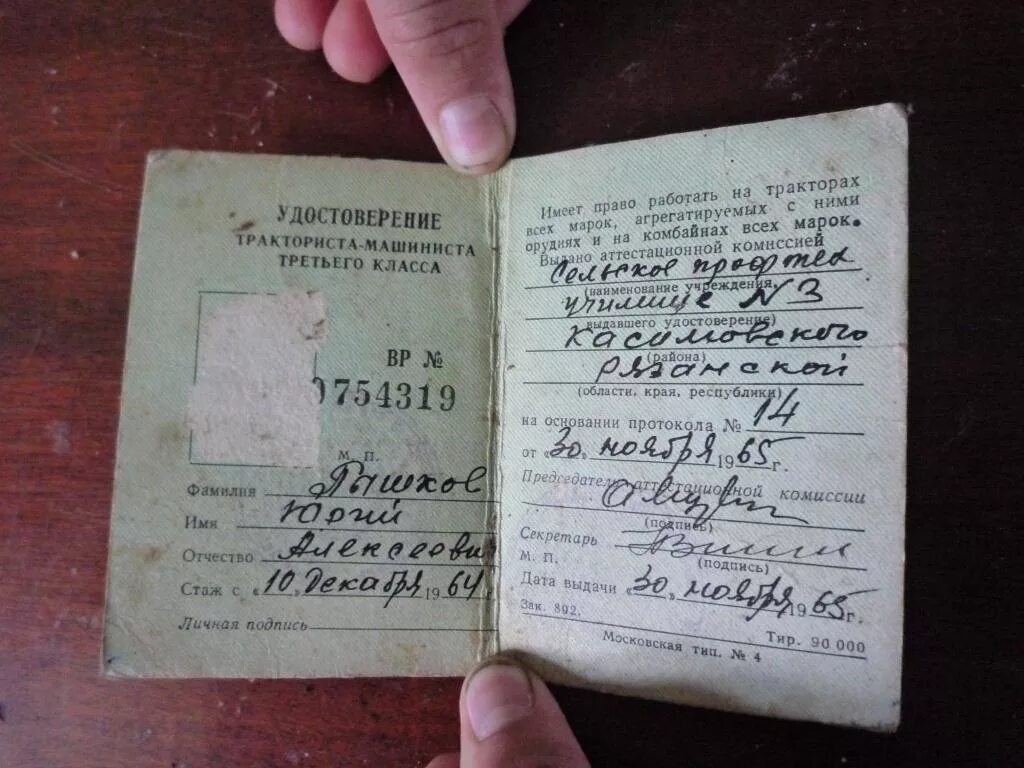 УДОСТОВЕРЕНИЕ
ТРАКТОРИСТА-МАШИНИСТА
ТРЕТЬЕГО КЛАССА
ВР №
0754319
М. П.
Фамилия Пышков
Имя Юрий
Отчество Алексеевич
Стаж с «10» Декабря 1964 г.
Личная подпись
Имеет право работать на тракторах
всех марок, агрегатируемых с ними
орудиях и на комбайнах всех марок.
Выдано аттестационной комиссией
Сельское профтех
(наименование учреждения,
училище N 3
выдавшего удостоверение)
Касимовского
(района)
Рязанской
(области, края, республики)
на основании протокола № 14
от «30» ноября 1965 г.
Председатель аттестационной комиссии
(подпись)
Секретарь
(подпись)
М. П.
Дата выдачи «30» ноября 1965 г.
Зак. 892. Тир. 90 000
Московская тип. № 4